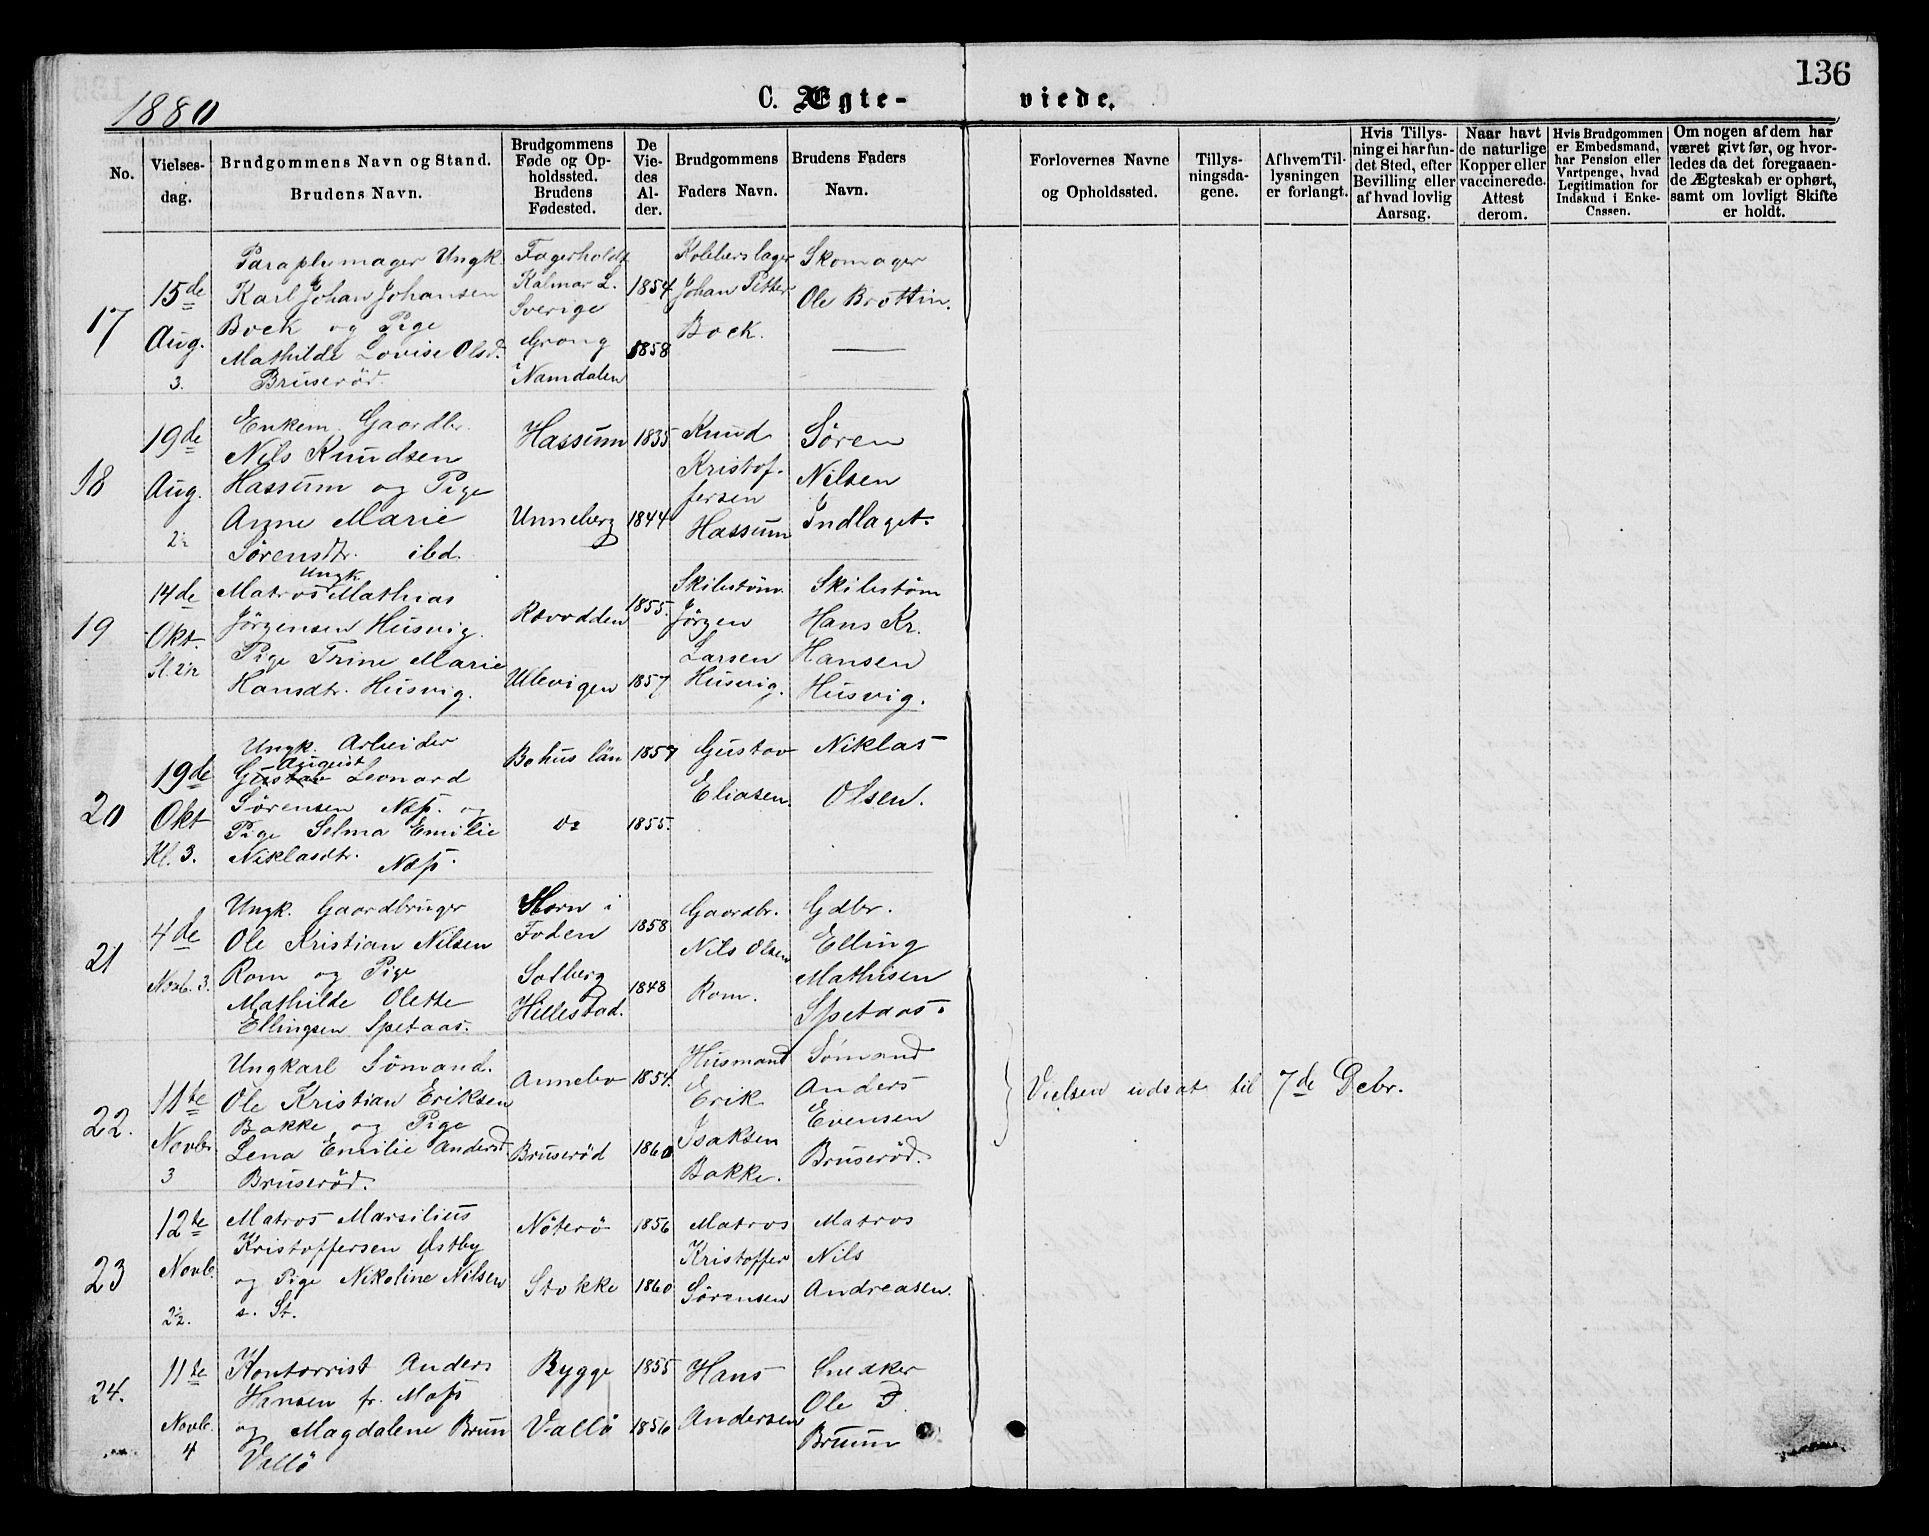 136
1880
C. Ægte- viede.
No.
Vielses-
dag.
Brudgommens Navn og Stand.
Brudens Navn.
Brudgommens
Føde og Op-
holdssted.
Brudens
Fødested.
De
Vie-
des
Al-
der.
Brudgommens
Faders Navn.
Brudens Faders
Navn.
Forlovernes Navne
og Opholdssted.
Tillys-
ningsda-
gene.
Af hvem Til-
lysningen
er forlangt.
Hvis Tillys-
ning ei har fun-
det Sted, efter
Bevilling eller
af hvad lovlig
Aarsag.
Naar havt
de naturlige
Kopper eller
vaccinerede.
Attest
derom.
Hvis Brudgommen
er Embedsmand,
har Pension eller
Vartpenge, hvad
Legitimation for
Indskud i Enke-
Cassen.
Om nogen af dem har
været givt før, og hvor-
ledes da det foregaaen-
de Ægteskab er ophørt,
samt om lovligt Skifte
er holdt.
17
15de
Aug.
3.
Paraplymager Ungk.
Karl Johan Johansen
Bock og Pige
Mathilde Lovise Olsd.
Bruserød.
Kalmar L.
Sverige
Grong
i Namdalen
1854
1858
Kobberslager
Johan Petter
Bock.
Skomager
Ole Brottin.
18
19de
Aug.
2½
Enkem. Gaardbr.
Nils Knudsen
Hassum og Pige
Anne Marie
Sørensdtr. ibd.
Hassum
Unneberg
1835
1844
Knud
Kristof-
fersen
Hassum
Søren
Nilsen
Indlaget.
19
14de
Okt.
Kl. 2½
Ungk.
Matros Mathias
Jörgensen Husvig.
Pige Trine Marie
Hansdtr. Husvig.
Ravodden
Ulevigen
1855.
1857
Skibstöm.
Jörgen
Larsen
Husvig.
Skibstöm
Hans Kr.
Hansen
Husvig.
20
19de
Okt
Kl. 3.
Ungk. Arbeider
August
Gustav Leonard
Sörensen Næs. og
Pige Selma Emilie
Niklasdtr. Næs.
Bohus län
do
1857
1855.
Gustav
Eliasen.
Niklas
Olsen.
21
4de
Novb. 3.
Ungk. Gaardbruger
Ole Kristian Nilsen
Rom og Pige
Mathilde Olette
Ellingsen Spetaas.
Horn i
Foden
Solberg
Hillestad.
1858
1848
Gaardbr.
Nils Olsen
Rom.
Gdbr.
Elling
Mathisen
Spetaas.
22.
11te
Novbr
3
Ungkarl Sömand.
Ole Kristian Eriksen
Bakke og Pige
Lena Emilie Andersd
Bruserød.
Annebo
Bruserød
1854.
1860
Husmand
Erik
Isaksen
Bakke.
Sömand
Anders
Evensen
Bruserød.
Vielsen udsat til 7de Debr.
23
12te
Novb.
2½.
Matros Marsilius
Kristoffersen Østby
og Pige Nikoline Nilsen
s. St.
Nöterö
Stokke
1856
1860
Matros
Kristoffer
Sörensen
Matros
Nils
Andreasen.
24.
11te
Novb.
4
Kontorrist Anders
Hansen fr. Moss
og Magdalene Bruun
Vallö
Rygge
Vallö
1855
1856
Hans
Andersen
Snedker
Ole
Bruun